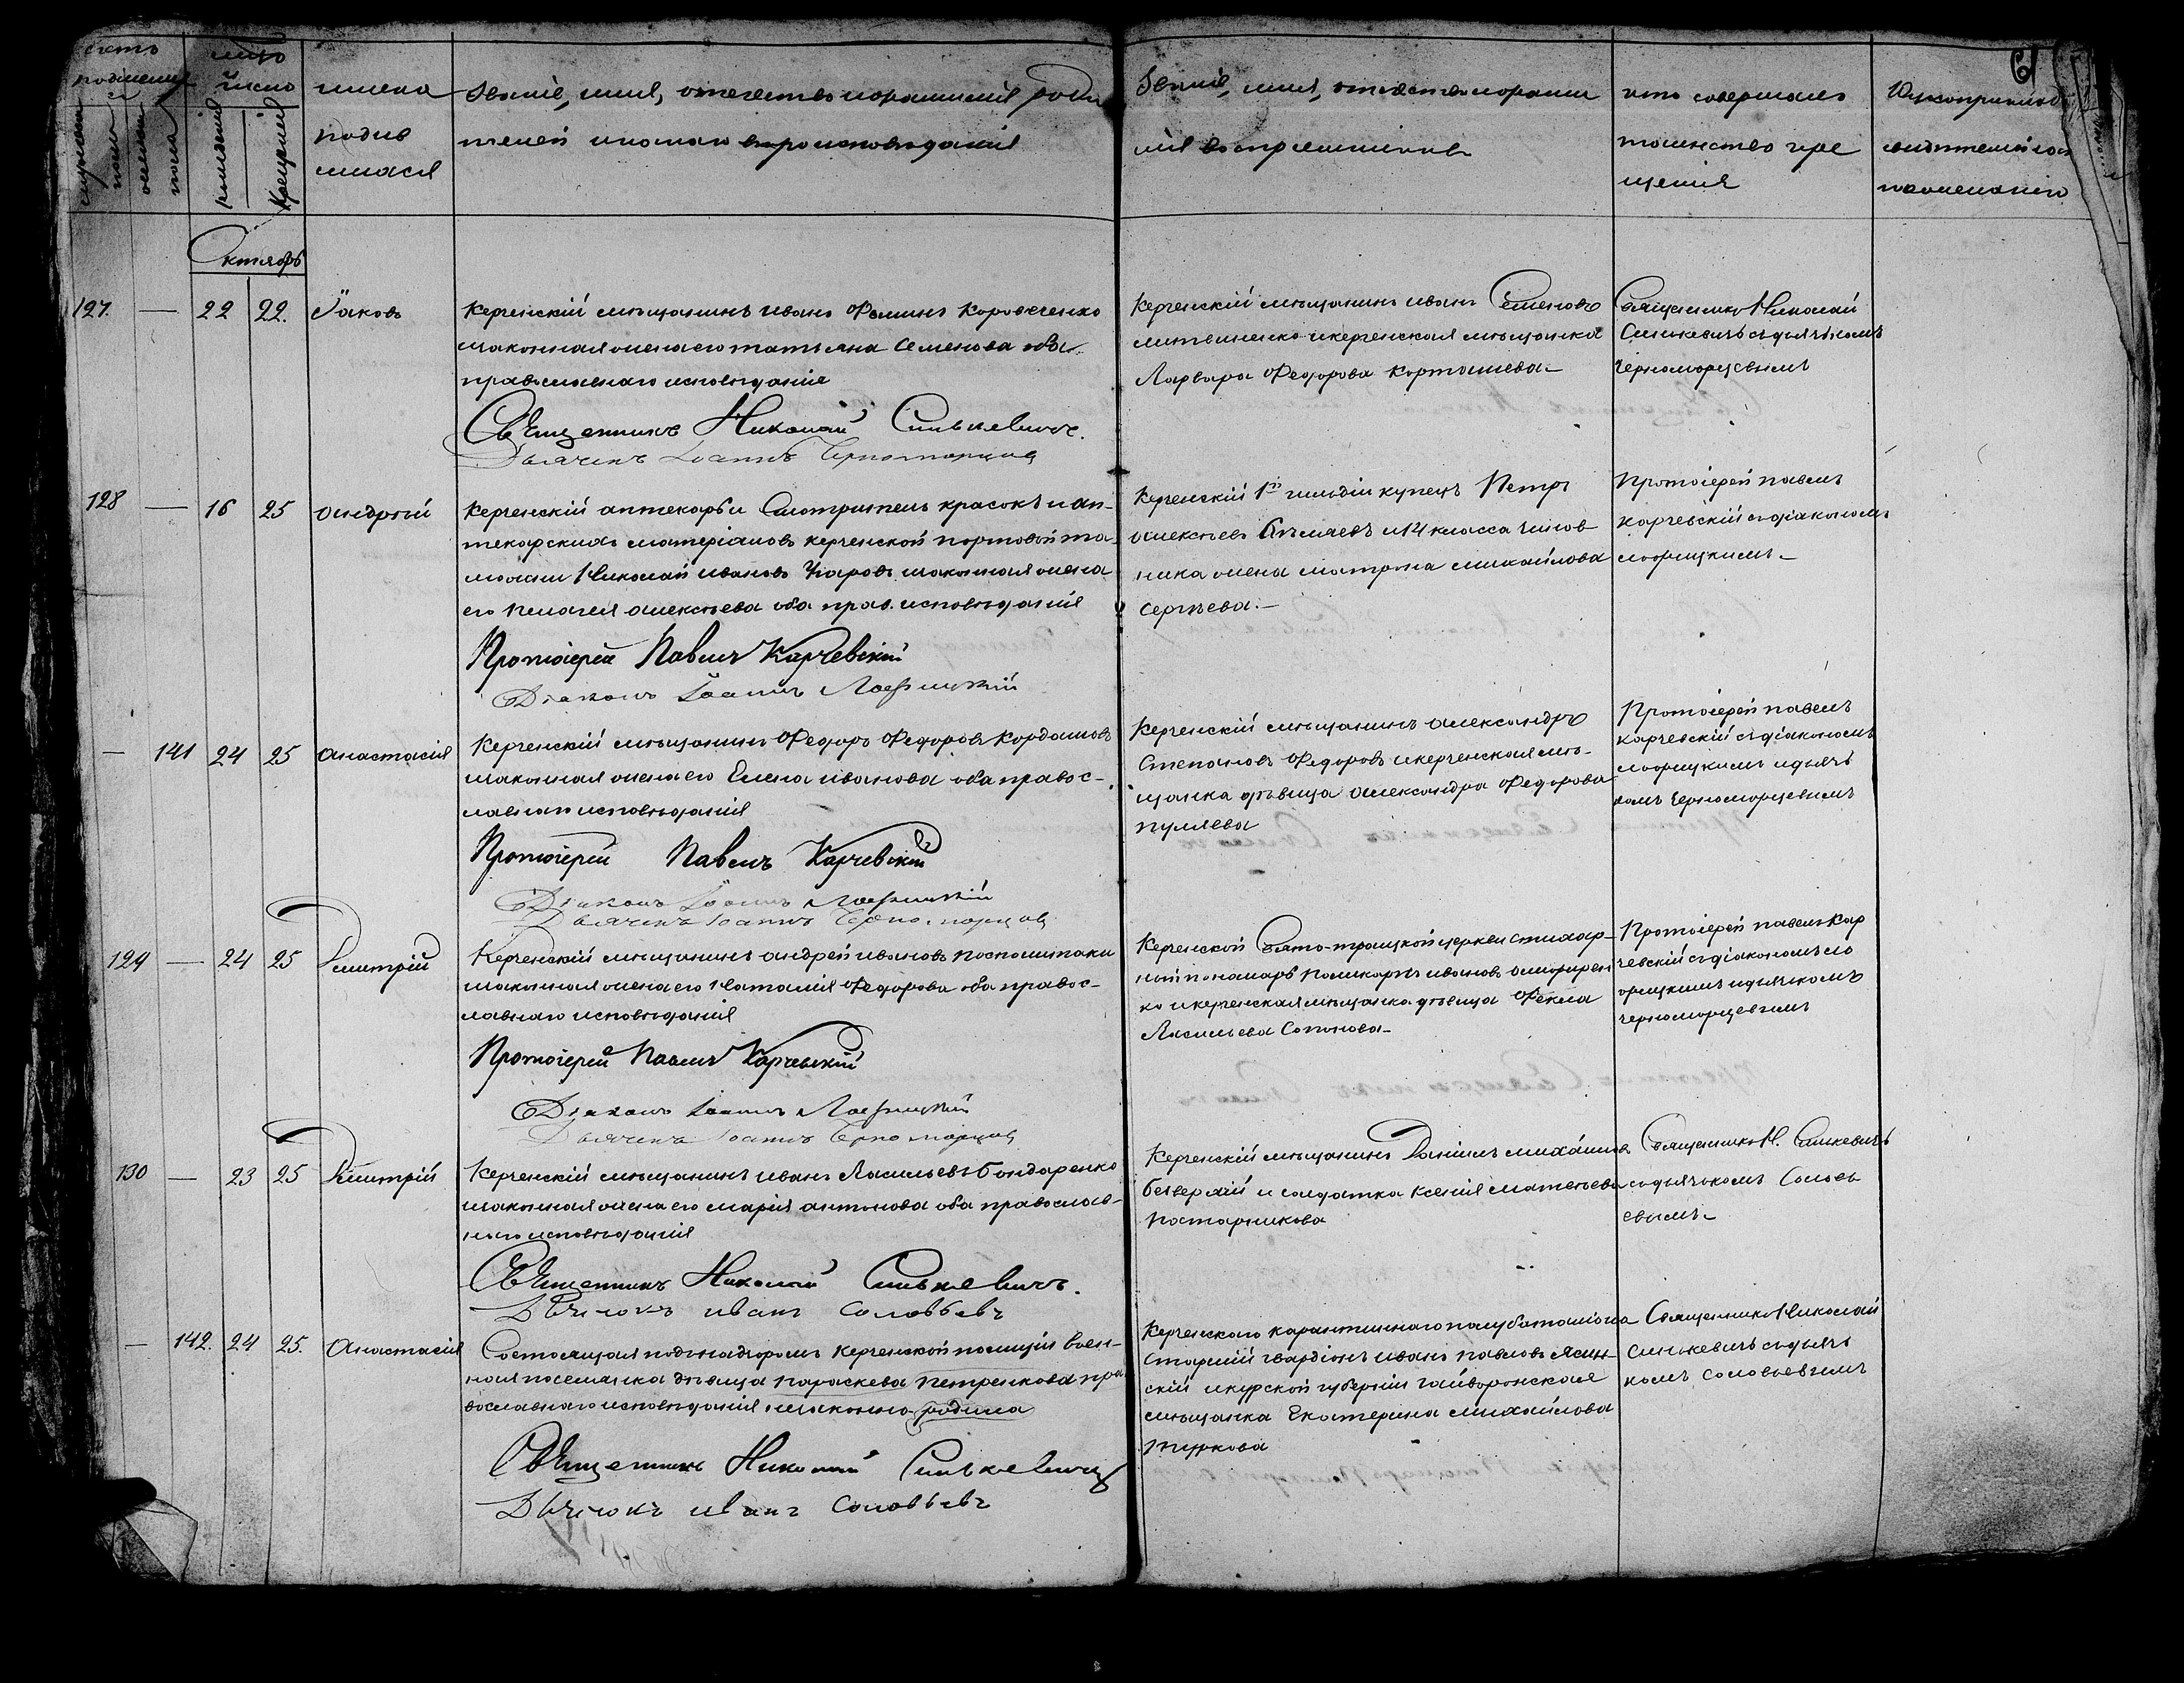 счетъ
родившихся
мужеска пола
женска пола
число
рожденія
крещенія
имена
родив
шихся
званіе, имя, отечество и фамилія роди
телей и какого вѣроисповѣданія
званіе, имя, отчество и фамил
ія воспріемниковъ
кто совершалъ
таинство кре
щенія
Рукоприклад
свидѣтелей
по желанію
Октябрь
127. — 22 22. Іаковъ
Керченскій мѣщанинъ Иванъ Фоминъ Коровченко
и законная жена его Татьяна Семенова оба
православнаго исповѣданія
Священникъ Николай Синькевичъ.
Дьячекъ Іоаннъ Черноморцовъ
Керченскій мѣщанинъ Иванъ Семеновъ
Литвиненко и керченская мѣщанка
Варвара Федорова Карташева
Священникъ Николай
Синькевичъ съ дьячкомъ
Черноморцевымъ
128 — 16 25 Андрей
Керченскій аптекарь и смотритель красокъ и ап-
текарскихъ матеріаловъ керченской портовой та-
можни Николай Ивановъ и законная жена
его Пелагея Алексѣева оба прав. исповѣданія
Протоіерей Павелъ Карчевскій
Діаконъ Іоаннъ Лофицкій
Керченскій 1й гильдіи купецъ Петръ
Алексѣевъ и 14 класса чинов
ника жена Матрона Михайлова
Сергѣева. —
Протоіерей Павелъ
Карчевскій съ діакономъ
Лофицкимъ —
— 141 24 25 Анастасія
Керченскій мѣщанинъ Федоръ Федоровъ Кордашовъ
и законная жена его Елена Иванова оба правос-
лавнаго исповѣданія
Протоіерей Павелъ Карчевскій
Діаконъ Іоаннъ Лофицкій
Дьячекъ Іоаннъ Черноморцовъ
Керченскій мѣщанинъ Александръ
Степановъ Федоровъ и керченская мѣ-
щанка дѣвица Александра Федорова
Пуляева
Протоіерей Павелъ
Карчевскій съ діакономъ
Лофицкимъ и дьяч
комъ Черноморцевымъ
129 — 24 25 Димитрій
Керченскій мѣщанинъ Андрей Ивановъ Поспошитаки
и законная жена его Наталія Федорова оба правос-
лавнаго исповѣданія
Протоіерей Павелъ Карчевскій
Діаконъ Іоаннъ Лофицкій
Дьячекъ Іоаннъ Черноморцовъ
Керченской Свято-Троицкой церкви стихар-
ный пономарь Поликарпъ Ивановъ
ко и керченская мѣщанка дѣвица Фекла
Васильева Сопонова —
Протоіерей Павелъ Кар
чевскій съ діакономъ Ло
фицкимъ и дьячкомъ
Черноморцевымъ
130 — 23 25 Димитрій
Керченскій мѣщанинъ Иванъ Васильевъ Бондаренко
и законная жена его Марія Антонова оба православ-
наго исповѣданія
Священникъ Николай Синькевичъ.
Дьячокъ Иванъ Соловьевъ
Керченскій мѣщанинъ Даніилъ Михайловъ
Безверхій и солдатка Ксенія Матвѣева
Натарникова
Священникъ Н. Синькевичъ
съ дьячкомъ Соловь
евымъ —
— 142. 24 25. Анастасія
Состоящая подъ надзоромъ Керченской полиціи воен-
ная поселянка дѣвица Параскева Петренкова пра
вославнаго исповѣданія незаконно родила
Священникъ Николай Синькевичъ
Дьячокъ Иванъ Соловьевъ
Керченскаго карантиннаго полубаталіона
старшій гвардіонъ Иванъ Павловъ Ясин-
скій и Курской губерніи Гайворонская
мѣщанка Екатерина Михайлова
Туркова
Священникъ Николай
Синькевичъ съ дьяч
комъ Соловьевымъ